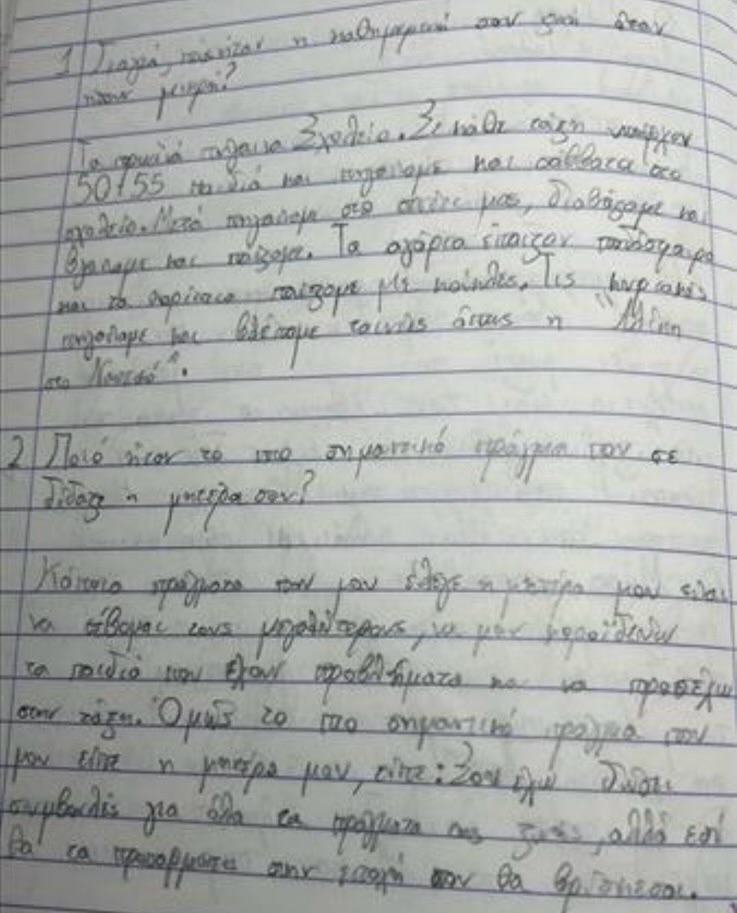 1 Γιαγιά, πως ήταν η καθημερινή σου ζωή όταν
ήσουν μικρή?
Τα πρωινά πήγαινα Σχολείο. Σε κάθε τάξη υπήρχαν
50/55 παιδιά και πηγαίναμε και σάββατα στο
σχολείο. Μετά πηγαίναμε στο σπίτι μας, διαβάζαμε και
βγαίναμε και παίζαμε. Τα αγόρια έπαιζαν ποδόσφαιρο
και τα κορίτσια παίζαμε με κούκλες. Τις κυριακές
πηγαίναμε και βλέπαμε ταινίες όπως η "Αλίκη
στο Ναυτικό".
2 Ποιό ήταν το πιο σημαντικό πράγμα που σε
δίδαξε η μητέρα σου?
Κάποια πράγματα που μου έλεγε η μητέρα μου είναι
να σέβομαι τους μεγαλύτερους, να μην κοροϊδεύω
τα παιδιά που έχουν προβλήματα και να προσέχω
στην τάξη. Όμως το πιο σημαντικό πράγμα που
μου είπε η μητέρα μου, είπε: Σου έχω δώσει
συμβουλές για όλα τα πράγματα της ζωής, αλλά εσύ
θα τα προσαρμόσεις στην εποχή που θα βρίσκεσαι.